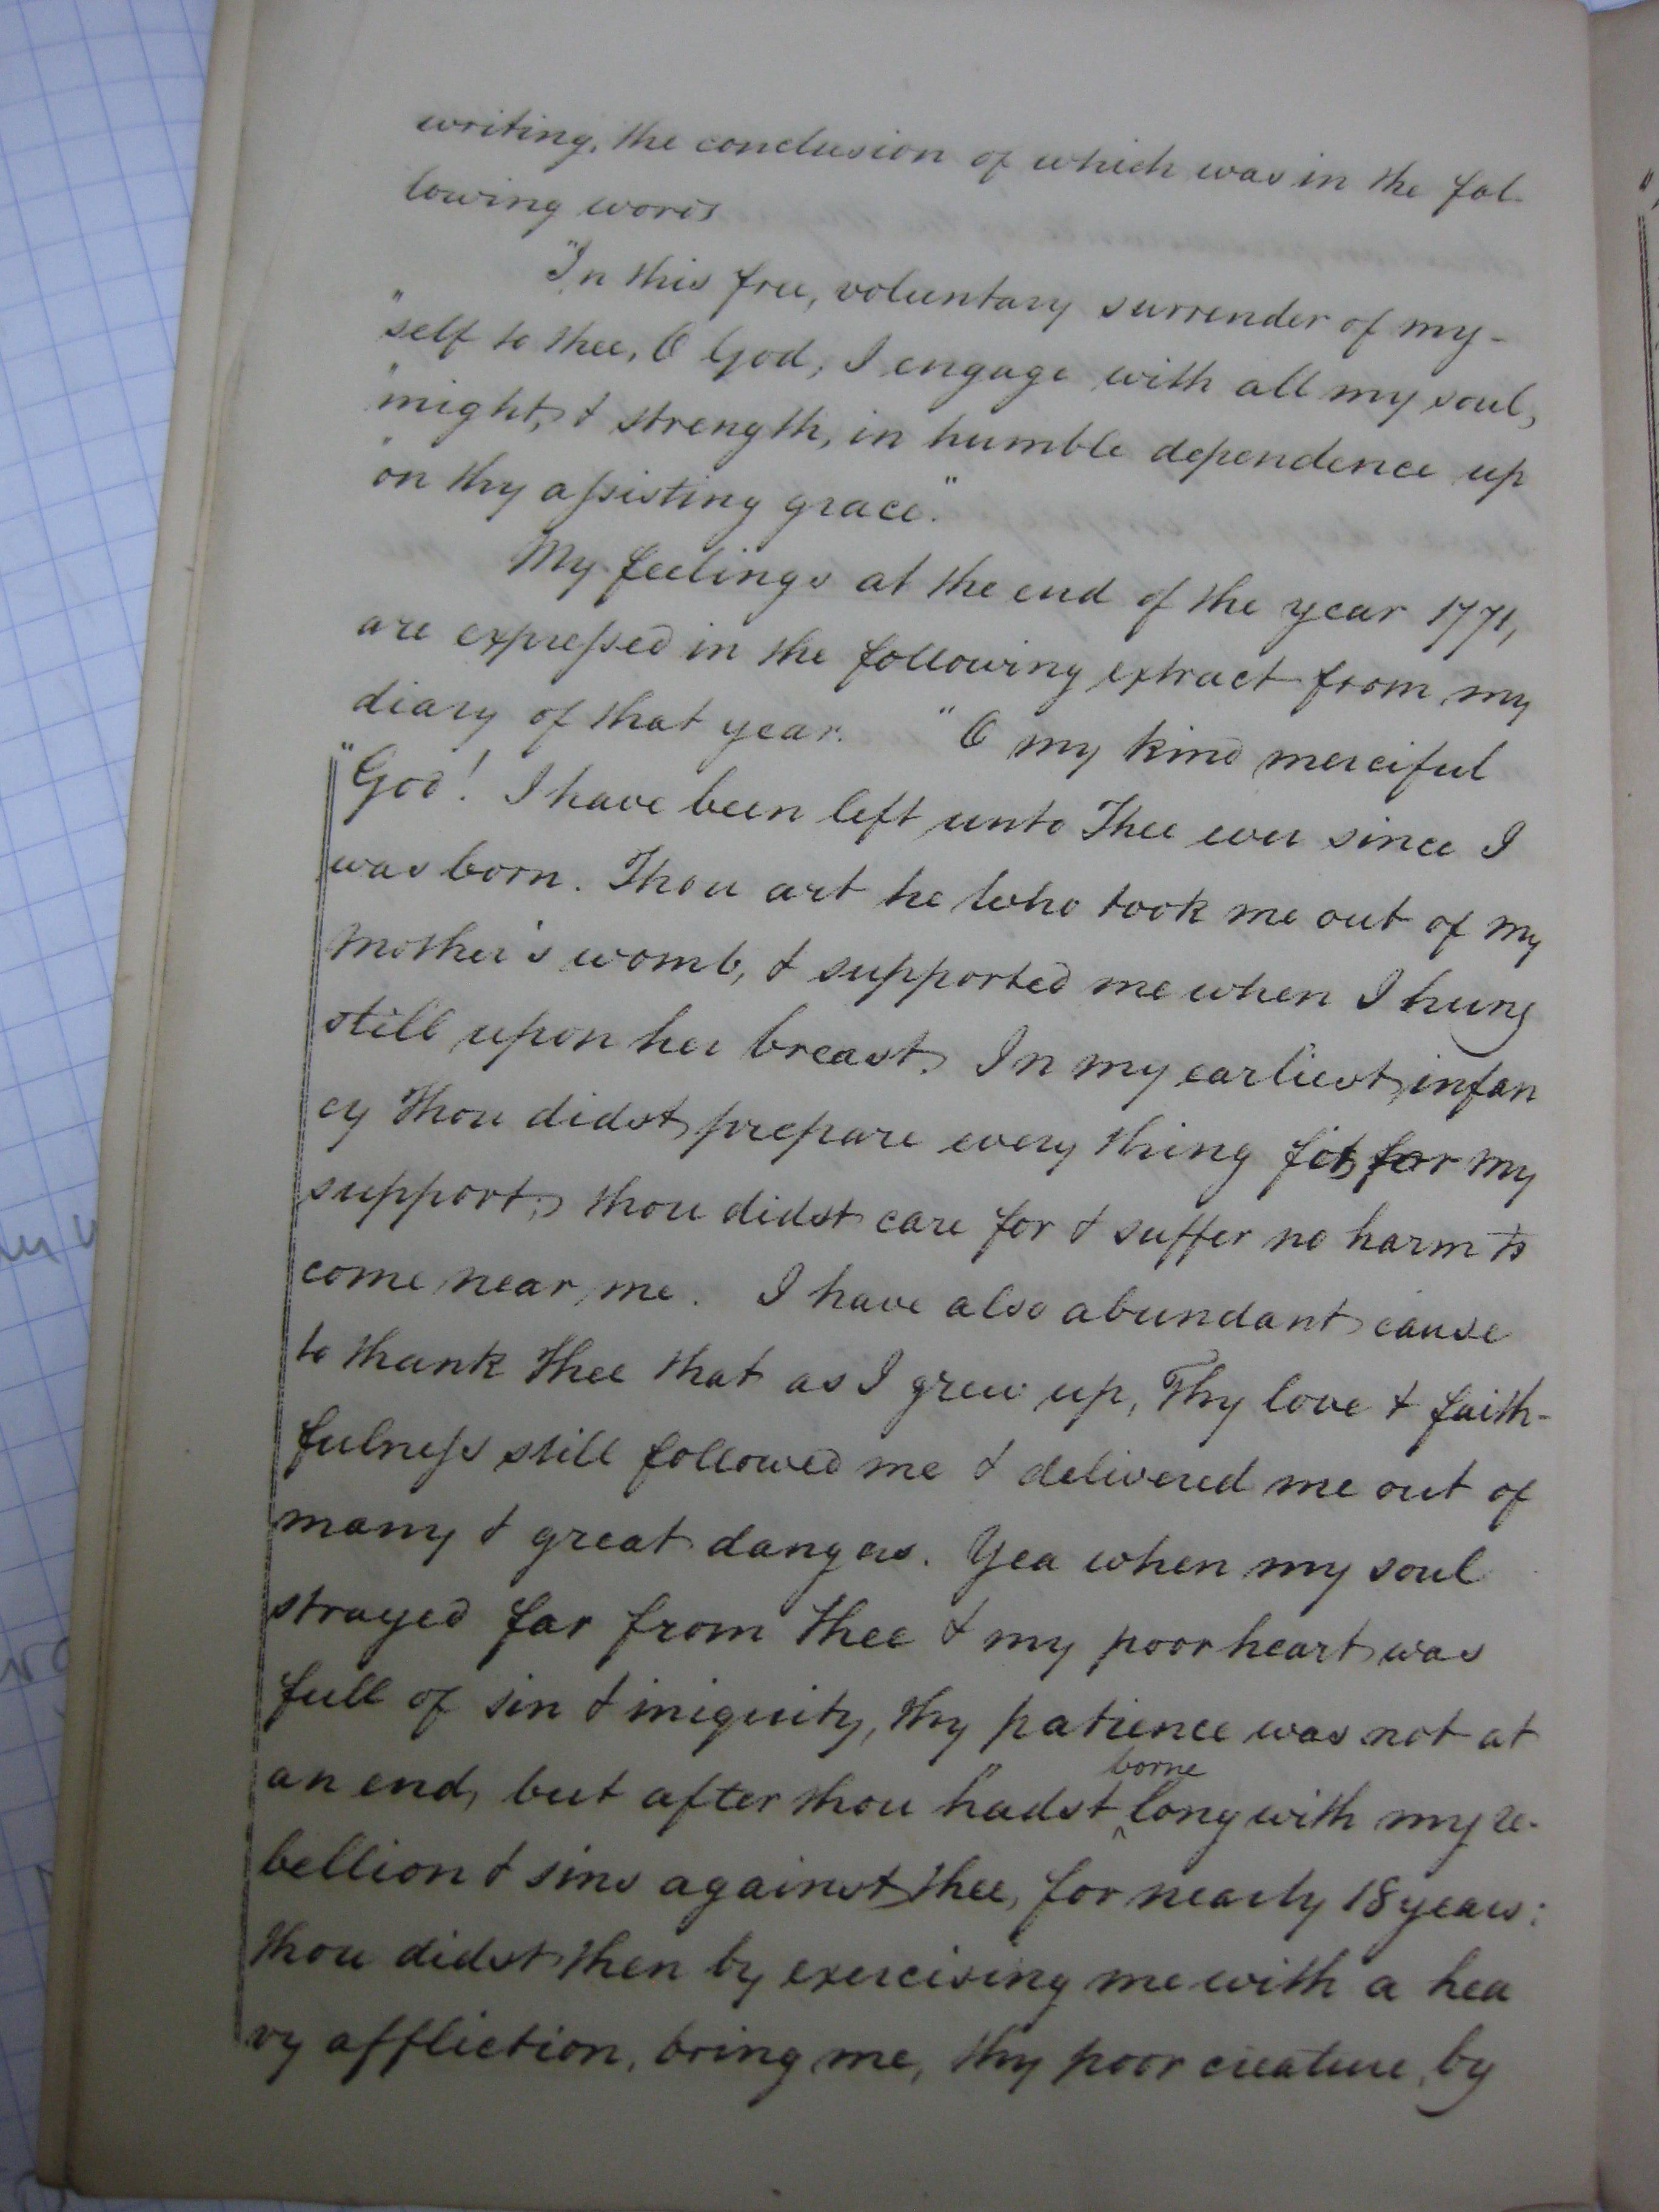 writing, the conclusion of which was in the fol-
lowing words
"In this free, voluntary surrender of my-
"self to thee, O God, I engage with all my soul,
"might, & strength, in humble dependence up
"on thy assisting grace."
My feelings at the end of the year 1771,
are expressed in the following extract from my
diary of that year. "O my kind merciful
"God! I have been left unto Thee ever since I
was born. Thou art he who took me out of my
mother's womb, & supported me when I hung
still upon her breast. In my earliest infan
cy Thou didst prepare every thing fit for my
support; thou didst care for & suffer no harm to
come near me. I have also abundant cause
to thank Thee that as I grew up, Thy love & faith-
fulness still followed me & delivered me out of
many & great dangers. Yea when my soul
strayed far from Thee & my poor heart was
full of sin & iniquity, thy patience was not at
an end, but after thou hadst borne long with my re-
bellion & sins against thee, for nearly 18 years:
thou didst then by exercising me with a hea
vy affliction, bring me, thy poor creature, by